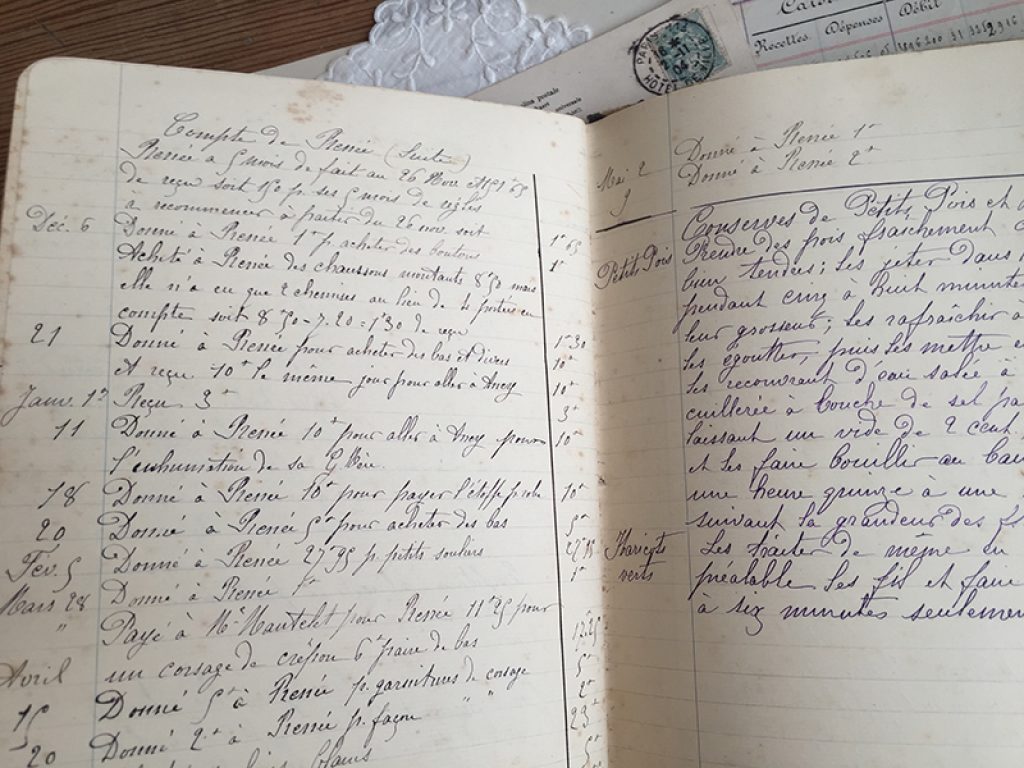 Compte de Renée (Suite)
Renée a 5 mois de fait au 26 Nov
de reçu soit 150 p. ses 5 mois de
à recommencer à partir du 26 nov. soit 1f 65
Déc. 6 Donné à Renée 1f p. acheter des boutons 1f
Acheté à Renée des chaussons montants 8f50 mais
elle n'a eu que 2 chemises au lieu de 4 portées en
compte soit 8f50 - 7.20 = 1f30 de reçu 1f30
21 Donné à Renée pour acheter des bas et divers 10f
et reçu 10f le même jour pour aller à Ancy 10f
Janv. 1er Reçu 3f 3f
11 Donné à Renée 10f pour aller à Ancy pour 10f
l'inhumation de sa G. Mère.
18 Donné à Renée 10f pour payer l'étoffe p. robe 10f
20 Donné à Renée 5f pour acheter des bas 5f
Fév. 5 Donné à Renée 27f95 p. petits souliers 27f95
Mars 28 Donné à Renée 1f 1f
" Payé à Me Hautelet pour Renée 11f25 pour
un corsage de crépon 6f paire de bas 17.25
Avril Donné 5f à Renée p. garnitures de corsage 5f
15 Donné 2f à Renée p. façon " " 2f
20
23f
5f
Mai 2 Donné à Renée 1f
9 Donné à Renée 2f
Petits Pois Conserves de Petits Pois et
Prendre des pois fraîchement
bien tendres; les jeter dans
pendant cinq à huit minutes
leur grosseur; les rafraîchir à
les égoutter, puis les mettre
les recouvrant d'eau salée à
cuillerée à bouche de sel pa
laissant un vide de 2 cent
et les faire bouillir au bain
une heure quinze à une
suivant la grandeur des fl
Haricots verts Les traiter de même en
préalable les fil et faire
à six minutes seulement
Recettes Dépenses Débit
HOTEL